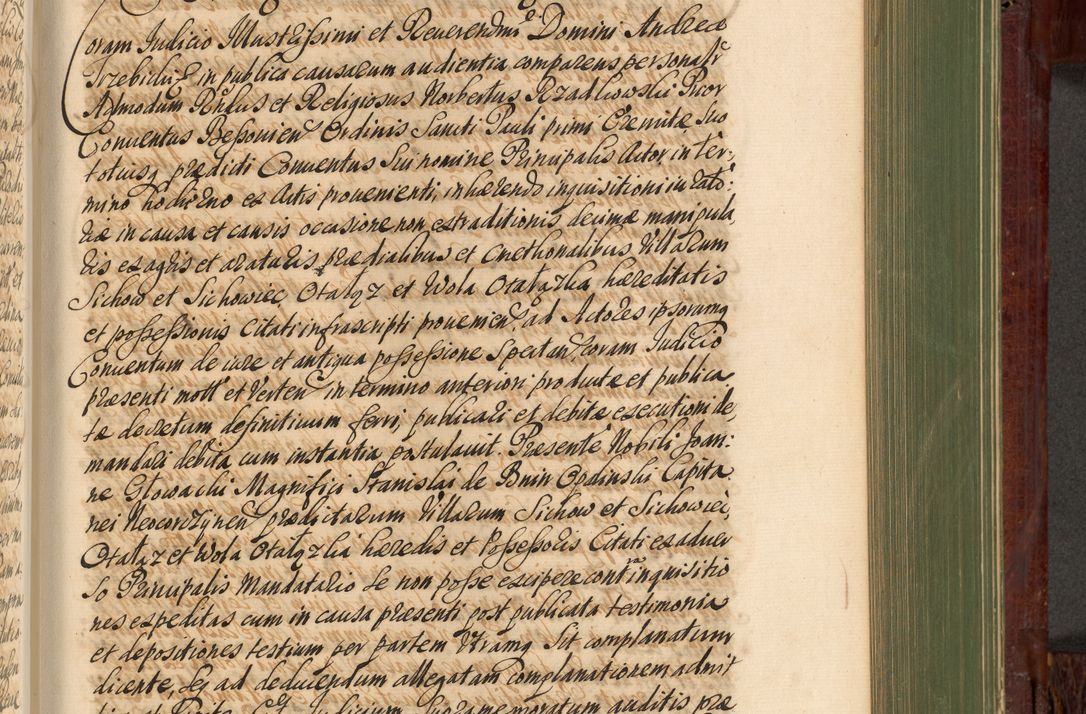 Coram Iudicio Illustrissimi et Reverendmi Domini Andreæ
Trzebicki in publica causarum audientia comparens personalr
Admodum Rndus et Religiosus Norbertus Rzadkowski Prior
Conventus Bessovien Ordinis Sancti Pauli primi Eremitæ Suo
totiusq prædicti Conventus Sui nomine Principalis Actor in ter:
mino hodierno ex Actis provenienti, inhærendo inquisitioni iurato:
riæ in causa et causis occasione non extraditionis decimæ manipula
ris ex agris et araturis prædialibus et Cnethonalibus Villarum
Sichow et Sichowiec, Otałęz et Wola Otałązka hæreditatis
et possessionis Citati infrascripti provenien ad Actores ipsorumq
Conventum de iure et antiqua possessione Spectan coram Iudicio
præsenti mott et Verten in termino anteriori productæ et publica
tæ decretum definitivum ferri, publicari et debitæ executioni de,
mandari debita cum instantia postulavit. Præsente Nobili Joan:
ne Głowacki Magnifici Stanislai de Bnin Opalinski Capita
nei Neocorczynen prædictarum Villarum Sichow et Sichowiec,
Otałęz et Wola Otałęzka hæredis et Possessoris Citati ex adver
so Principalis Mandatario Se non posse excipere contr inquisitio
nes expeditas cum in causa præsenti post publicata testimonia
et depositiones testium per partem Utramq Sit complanatum
dicente, Seq ad deducendum allegatam complanationem admit